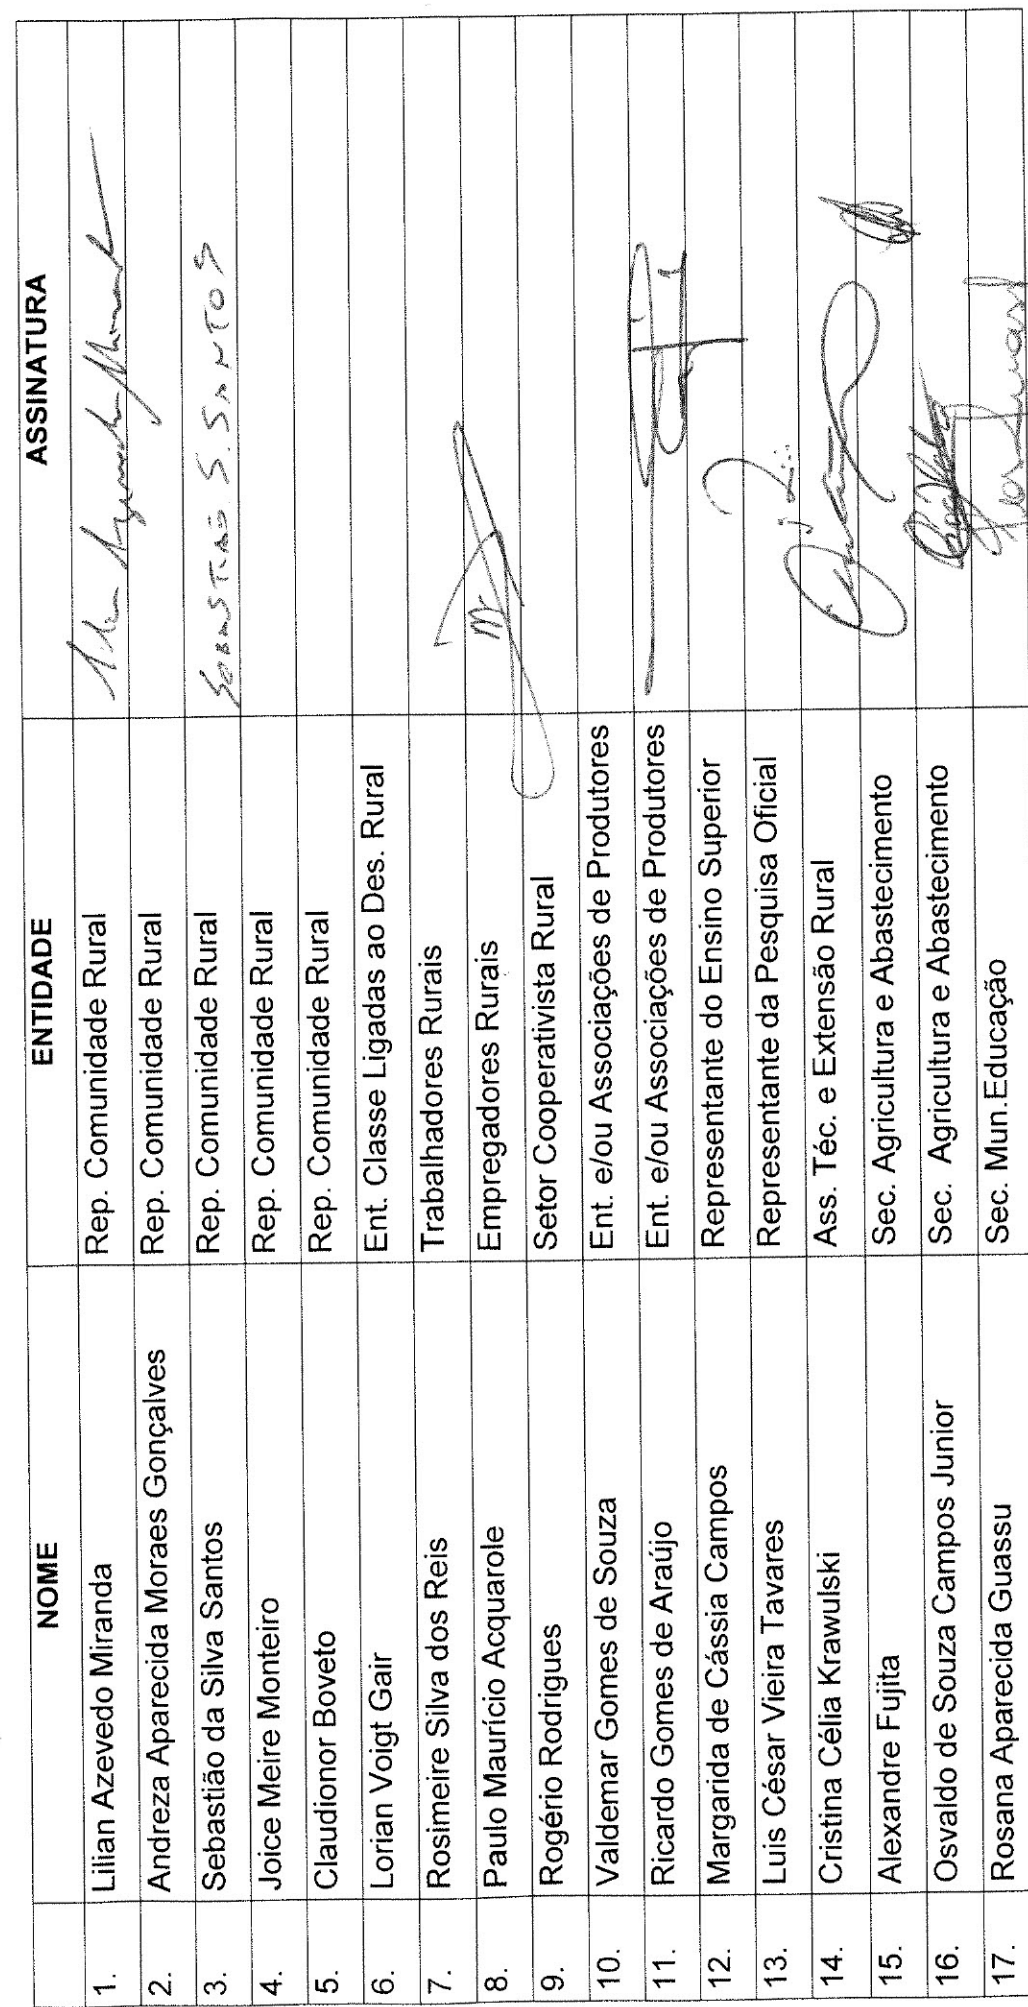 NOME ENTIDADE ASSINATURA
1. Lilian Azevedo Miranda Rep. Comunidade Rural
2. Andreza Aparecida Moraes Gonçalves Rep. Comunidade Rural
3. Sebastião da Silva Santos Rep. Comunidade Rural SEBASTIÃO S. SANTOS
4. Joice Meire Monteiro Rep. Comunidade Rural
5. Claudionor Boveto Rep. Comunidade Rural
6. Lorian Voigt Gair Ent. Classe Ligadas ao Des. Rural
7. Rosimeire Silva dos Reis Trabalhadores Rurais
8. Paulo Maurício Acquarole Empregadores Rurais
9. Rogério Rodrigues Setor Cooperativista Rural
10. Valdemar Gomes de Souza Ent. e/ou Associações de Produtores
11. Ricardo Gomes de Araújo Ent. e/ou Associações de Produtores
12. Margarida de Cássia Campos Representante do Ensino Superior
13. Luis César Vieira Tavares Representante da Pesquisa Oficial
14. Cristina Célia Krawulski Ass. Téc. e Extensão Rural
15. Alexandre Fujita Sec. Agricultura e Abastecimento
16. Osvaldo de Souza Campos Junior Sec. Agricultura e Abastecimento
17. Rosana Aparecida Guassu Sec. Mun.Educação